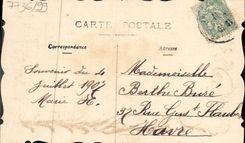 7736/99
CARTE POSTALE
Correspondance
Adresse
Souvenir du 4
Juillet 1907
Marie H.
Mademoiselle
Berthe Buré
37 Rue Gust Flaubert
Havre